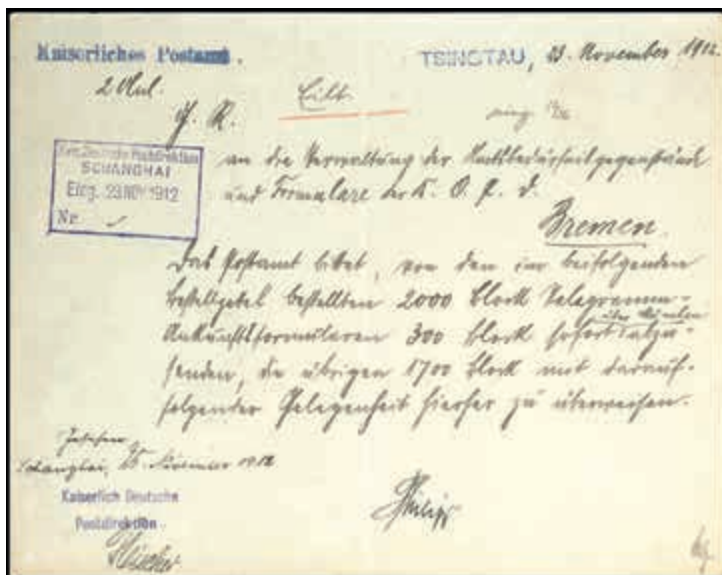 Kaiserliches Postamt.
TSINGTAU, 23. November 1912.
Eilt
Kais. Deutsche Postdirektion
SCHANGHAI
Eing. 29 NOV 1912
Nr.
an die Verwaltung der Amtsbedürfnißgegenstände
und Formulare der K. O. P. D.
Bremen.
Das Postamt bittet, von den im beifolgenden
Bestellzettel bestellten 2000 Block Telegramm-
Ankunftsformularen 300 Block sofort abzu-
senden, die übrigen 1700 Block mit darauf-
folgender Gelegenheit hierher zu überweisen.
Gesehen
Schanghai, 25. November 1912
Kaiserlich Deutsche
Postdirektion.
Philipp